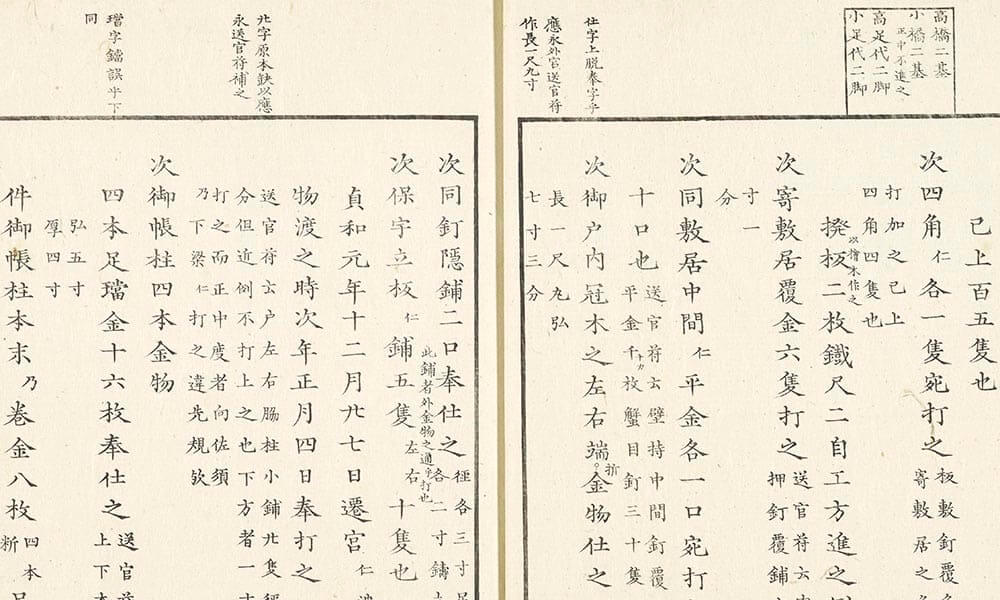 高橋二基
小橋二基
正中不進之
高足代二脚
小足代二脚
仕字上脱奉字乎
應永外官送官符
作長一尺九寸
已上百五隻也
次四角仁各一隻宛打之
板敷釘覆
寄敷居之
打加之已上
四角四隻也
揬板二枚鐵尺二自工方進之
以檜木作之
次寄敷居覆金六隻打之
送官符云
押釘覆鋪
寸一
分
次同敷居中間仁平金各一口宛打
十口也
送官符云壁持中間釘覆
平金千枚蟹目釘三十隻
次御户内冠木之左右端金物仕之
折
長一尺九弘
七寸三分
次同釘隱鋪二口奉仕之
徑各三寸
各二寸鑄
次保字立板仁鋪五隻
左右
十隻也
此鋪者外金物之通乎打也
貞和元年十二月廿七日遷宮仁
物渡之時次年正月四日奉打之
送官符云户左右脇柱小鋪廿隻
分但近例不打上之也下方者一寸
打之而正中度者向佐須
乃下梁仁打之違先規欤
次御帳柱四本金物
四本足璫金十六枚奉仕之
送官符
上下
弘五寸
厚四寸
件御帳柱本末乃卷金八枚
四本
新
廿字原本缺以應
永送官符補之
璔字鐺誤乎下
同